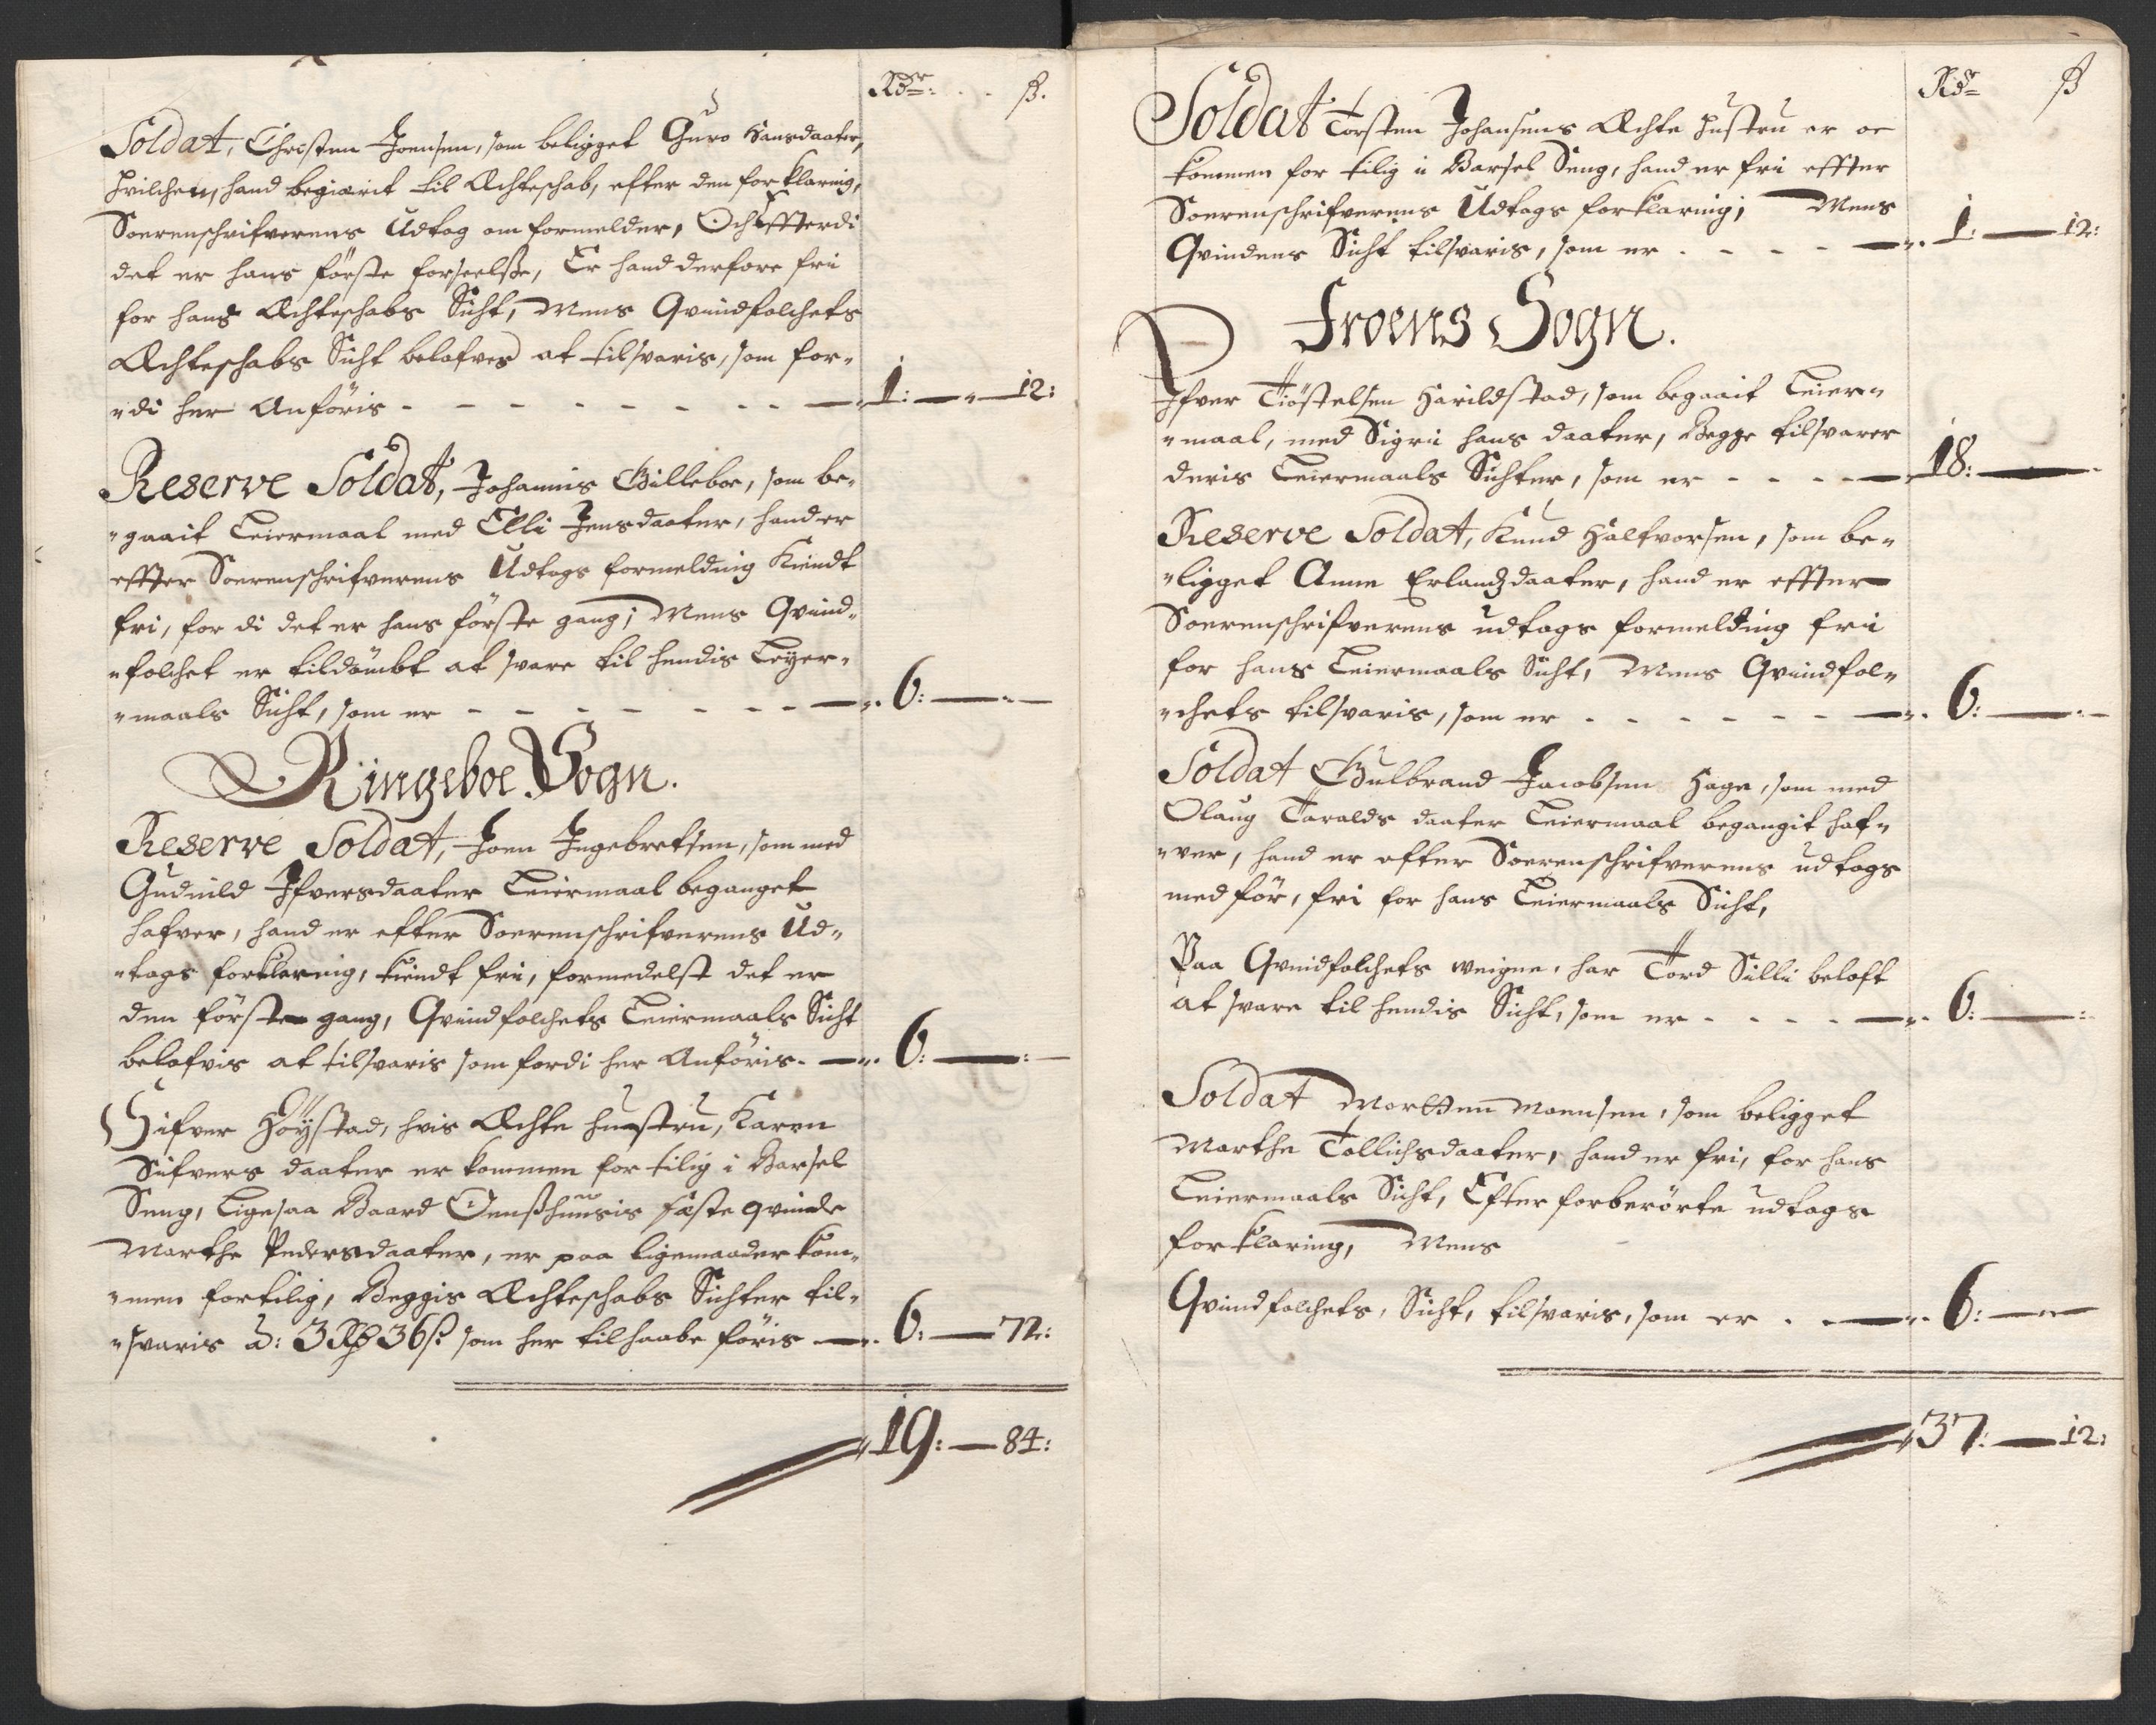 Rdr: ß.
Soldat, Christen Joensen, som beligget Guro Hansdaater,
hvilchen, hand begiærit til Ægteschab, efter den forklaring,
Soerenschrifverens Udtog om formelder, Och Effterdi
det er hans förste forseelße, Er hand derfore fri
for hans Ægteschabs Sicht, Mens Qvindfolchets
Ægteschabs Sicht belofves at tilsvaris, som for-
di her Anföris - - - 1: — 12:
Reserve Soldat, Johannis Gilleboe, som be-
gaait Leiermaal med Elli Jensdaater, hand er
effter Soerenschrifverens Udtogs formelding Kiendt
fri, for di det er hans förste gang; Mens Qvind-
folchet er tildömbt at svare til hendis Leyer-
maals Sicht, som er - - - 6: —
Ringeboe Sogn.
Reserve Soldat, Joen Ingebretsen, som med
Gudnild Ifversdaater Leiermaal beganget
hafver, hand er efter Soerenschrifverens Ud-
togs forklaring, kiendt fri, formedelst det er
den förste gang, Qvindfolchets Leiermaals Sicht
belofvis at tilsvaris som fordi her Anföris. — 6: —
Sifver Höystad, hvis Ægte hustru, Karen
Sifvers daater er kommen for tilig i Barsel
Seng, Ligesaa Baard Fæste qvinde
Marthe Pedersdaater, er paa ligemaader kom-
men fortilig, Beggis Ægteschabs Sichter til-
svaris â: 3 Rd 36 ß. som her tilhaabe föris — 6: — 72:
19: — 84:
Rdr ß
Soldat Torsten Johansens Ægte Hustru er oc
kommen for tilig i Barsel Seng, hand er fri effter
Soerenschrifverens Udtogs forklaring; Mens
Qvindens Sicht tilsvaris, som er - - - 1: — 12:
Froens Sogn.
Ifver Tiöstelsen Harildstad, som begaait Leier-
maal, med Sigri Hans daater, Begge tilsvarer
deris Leiermaals Sichter, som er - - - 18: —
Reserve Soldat, Knud Halfvorsen, som be-
ligget Anne Erlandsdaater, hand er effter
Soerenschrifverens udtogs formelding fri
for hans Leiermaals Sicht, Mens Qvindfol-
chets tilsvaris, som er - - - 6: —
Soldat Gulbrand Jacobsen Hage, som med
Olaug Taralds daater Leiermaal begangit haf-
ver, hand er efter Soerenschrifverens udtogs
medför, fri for hans Leiermaals Sicht,
Paa Qvindfolchets weigne, har Tord Silli beloft
at svare til hendis Sicht, som er - - - 6: —
Soldat Morten Moensen, som beligget
Marthe Tollichsdaater, hand er fri, for hans
Leiermaals Sicht, Efter forberörte udtogs
forklaring, Mens
Qvindfolchets, Sicht, tilsvaris, som er - - 6: —
37: — 12: